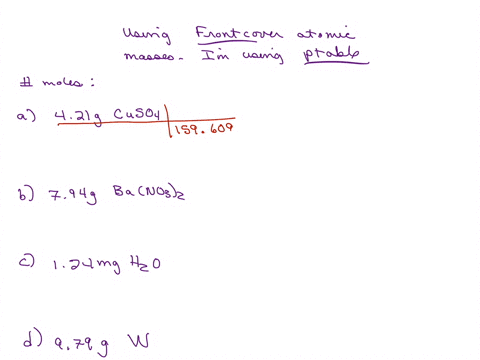 Using Frontcover atomic
masses. I'm using ptable
# moles:
a) 4.21g CuSO4
159.609
b) 7.94g Ba(NO3)2
c) 1.24mg H2O
d) 9.79g W